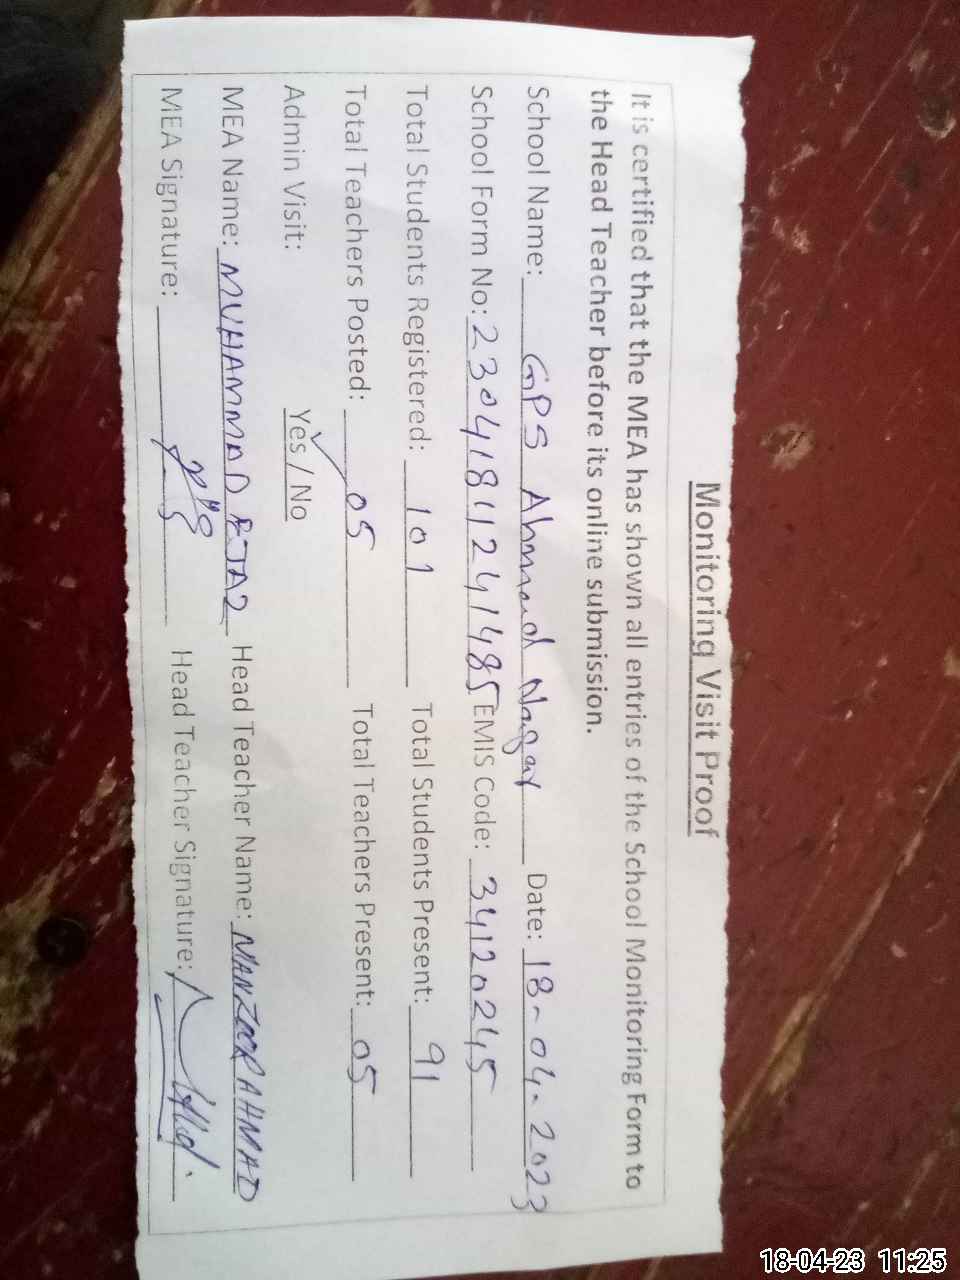 Monitoring Visit Proof
It is certified that the MEA has shown all entries of the School Monitoring Form to
the Head Teacher before its online submission.
School Name: GPS Ahmad Nagar Date: 18-04-2023
School Form No: 23041811241485 EMIS Code: 34120245
Total Students Registered: 101 Total Students Present: 91
Total Teachers Posted: 05 Total Teachers Present: 05
Admin Visit: Yes / No
MEA Name: MUHAMMAD EJAZ Head Teacher Name: MANZOOR AHMAD
MEA Signature: Head Teacher Signature:
18-04-23 11:25